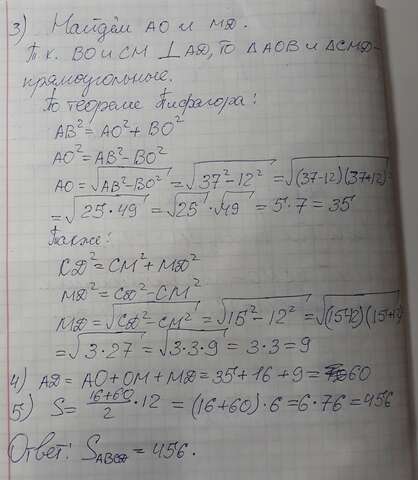 3) Найдём АО и МD.
Т.к. ВО и СМ ⊥ AD, то ΔАОВ и ΔСМD-
прямоугольные.
По теореме Пифагора:
AB²= AO²+ BO²
AO²= AB²-BO²
AO= √AB²-BO² = √37²-12² = √(37-12)(37+12) =
= √25·49 = √25·√49 = 5·7 = 35
Также:
CD²= CM²+ MD²
MD²= CD²-CM²
MD= √CD²-CM² = √15²-12² = √(15-12)(15+12)
= √3·27 = √3·3·9 = 3·3 = 9
4) AD= AO+OM+MD= 35+16+9= 60
5) S= (16+60)/2 · 12 = (16+60)·6 =6·76 = 456
Ответ: S ABCD = 456.